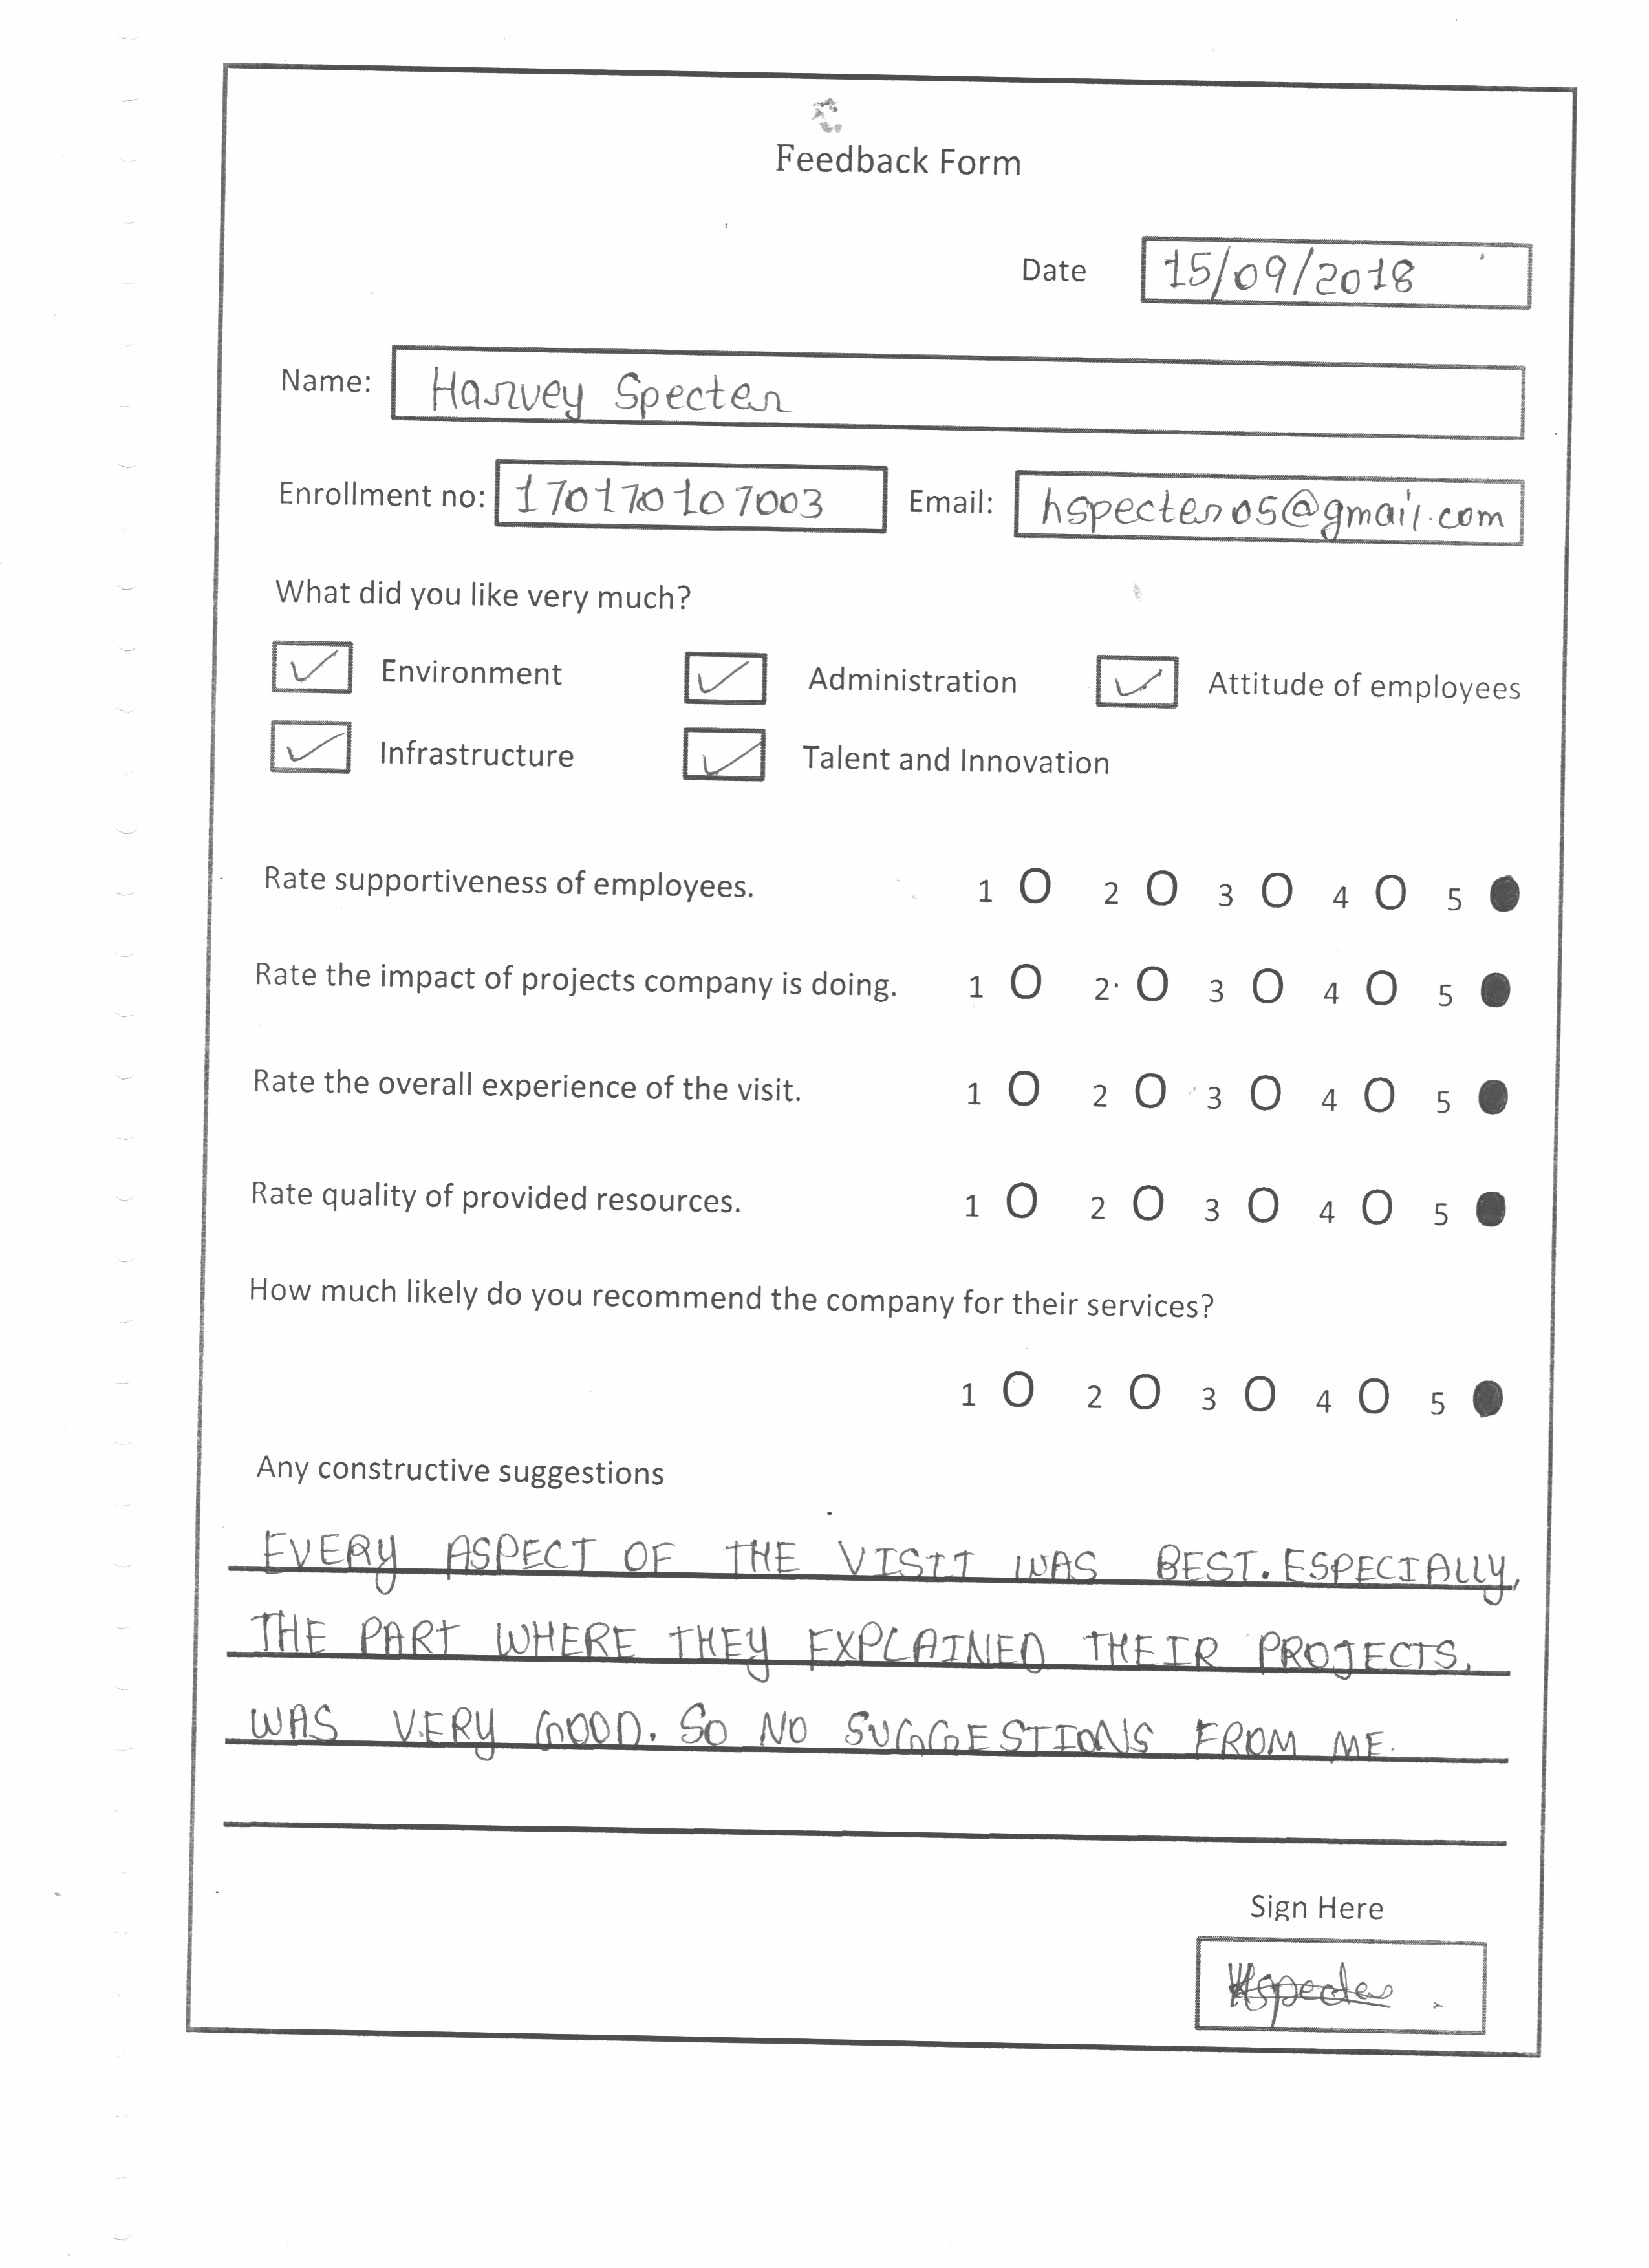 Feedback Form
Date 15/09/2018
Name: Harvey Specter
Enrollment no: 170170107003 Email: hspecter05@gmail.com
What did you like very much?
Environment Administration Attitude of employees
Infrastructure Talent and Innovation
Rate supportiveness of employees. 1 2 3 4 5
Rate the impact of projects company is doing. 1 2 3 4 5
Rate the overall experience of the visit. 1 2 3 4 5
Rate quality of provided resources. 1 2 3 4 5
How much likely do you recommend the company for their services?
1 2 3 4 5
Any constructive suggestions
EVERY ASPECT OF THE VISIT WAS BEST. ESPECIALLY,
THE PART WHERE THEY EXPLAINED THEIR PROJECTS,
WAS VERY GOOD. SO NO SUGGESTIONS FROM ME.
Sign Here
Hspecter